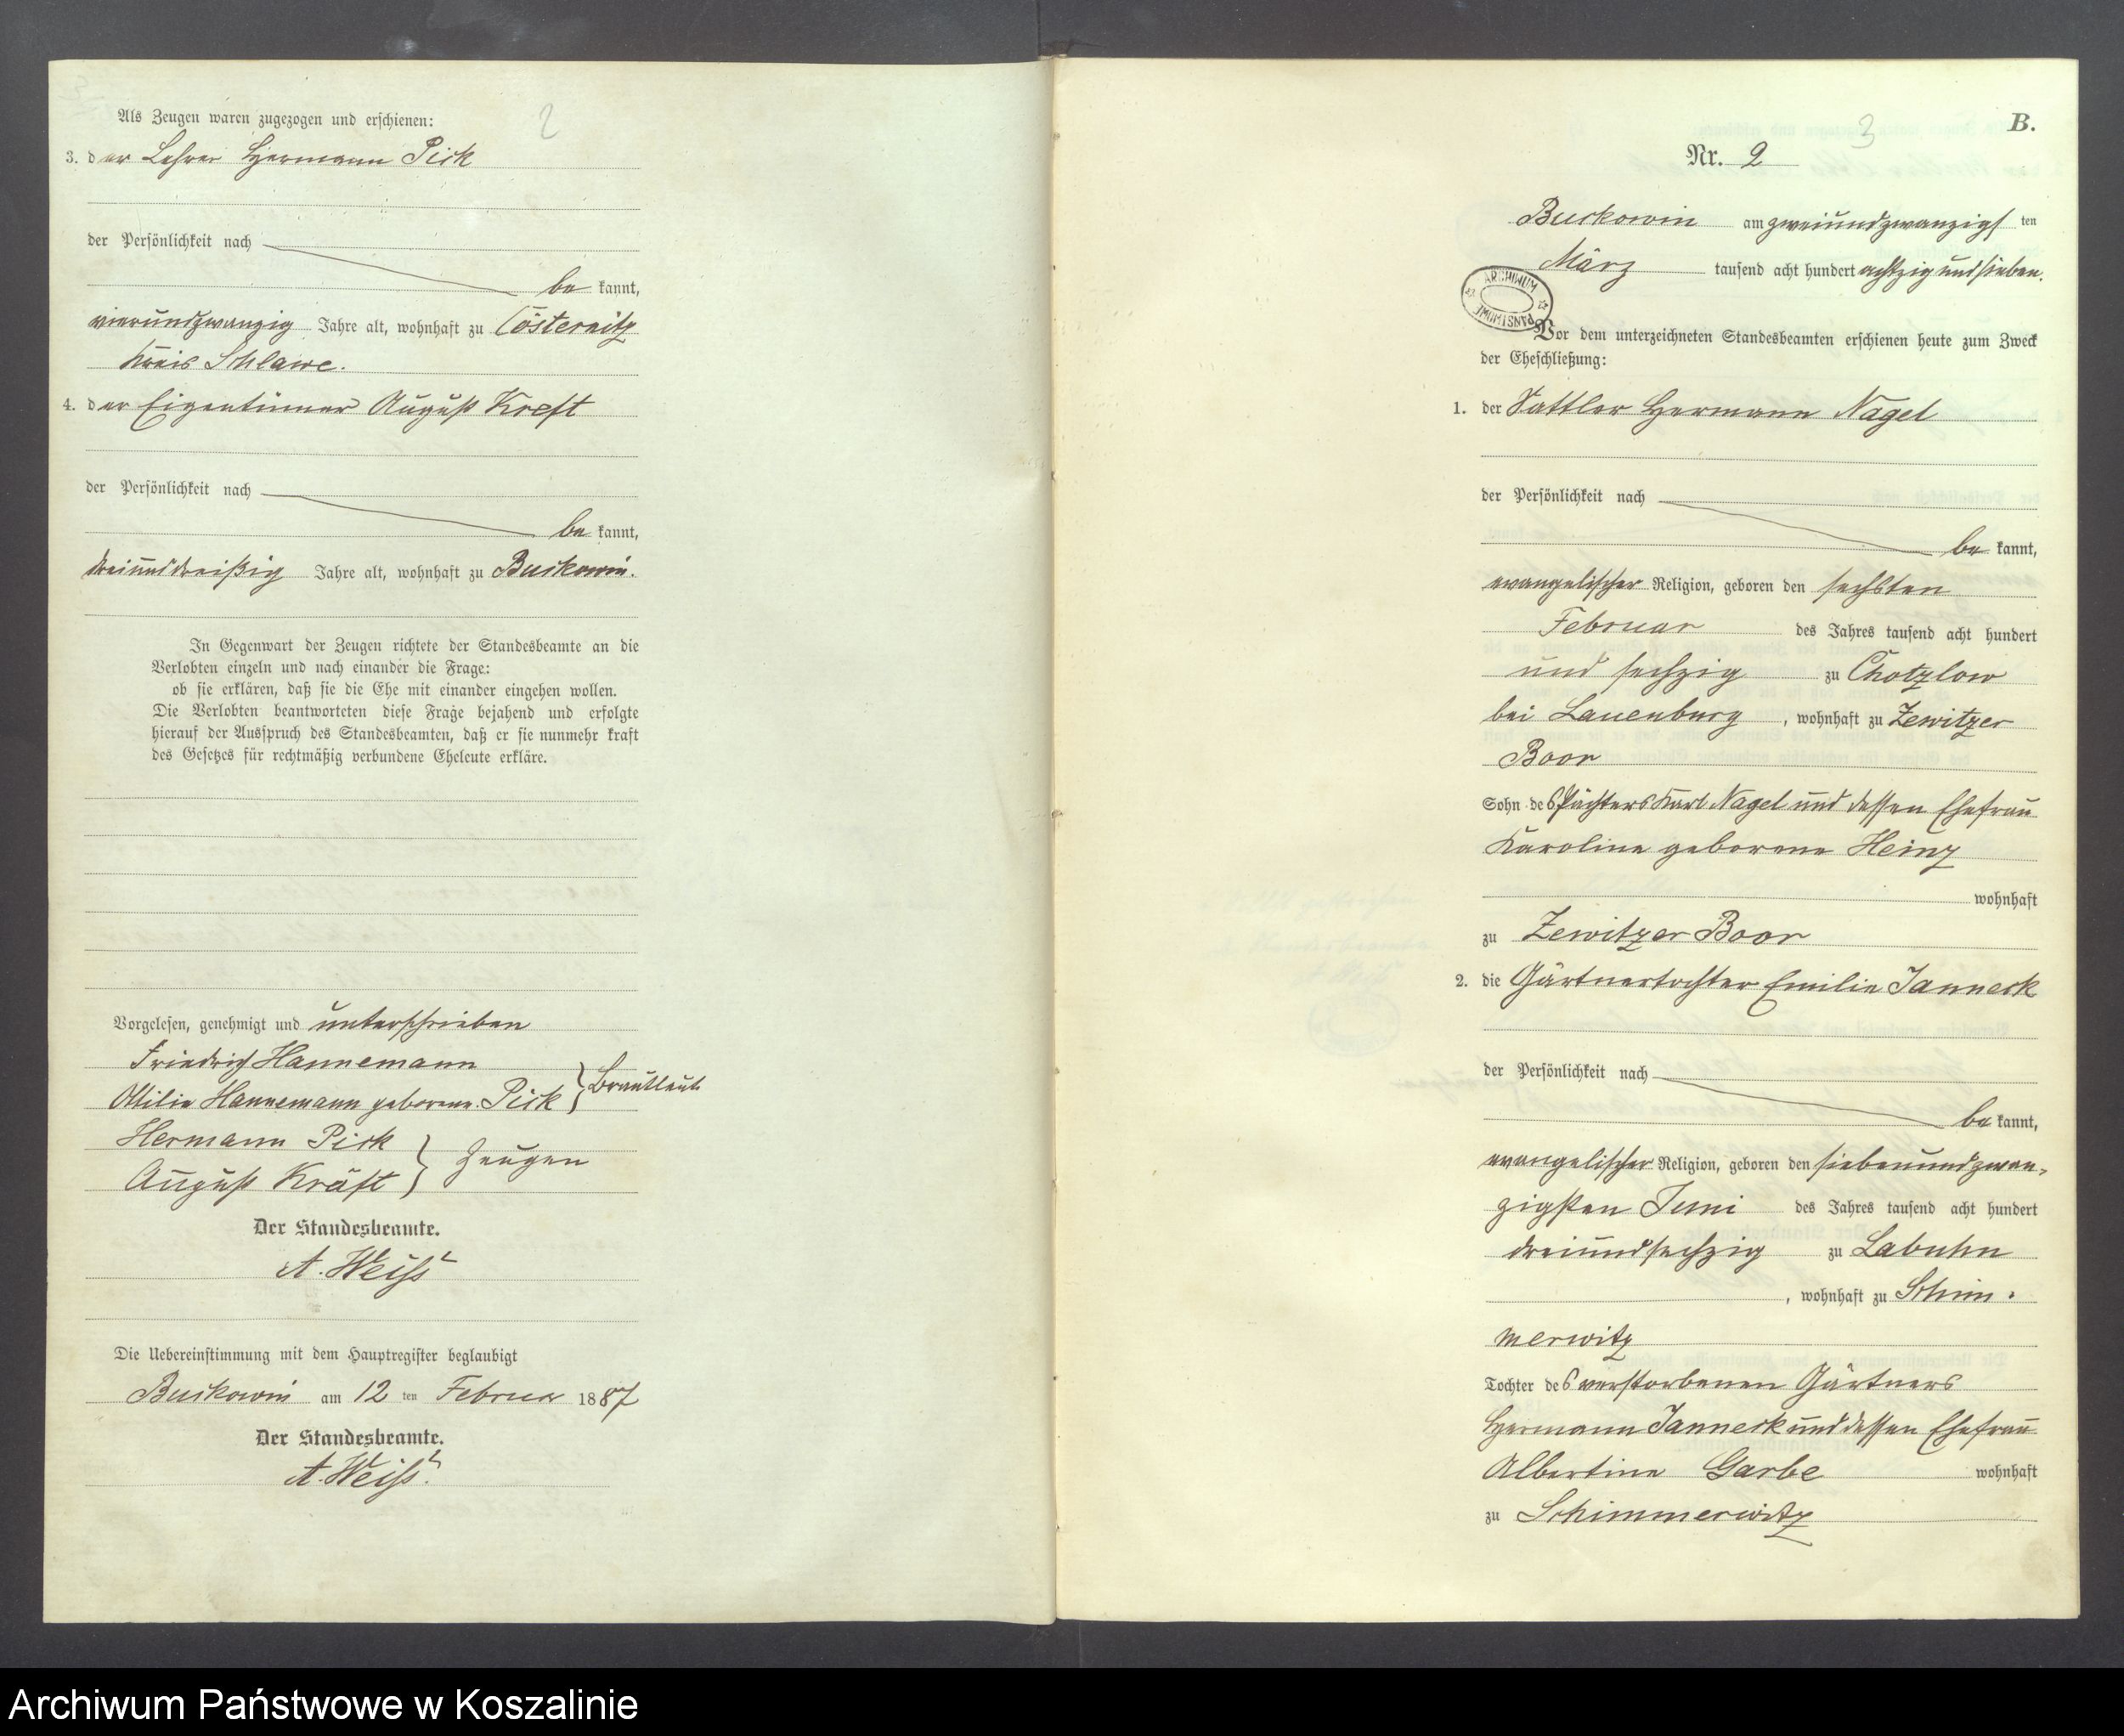 2
Als Zeugen waren zugezogen und erschienen:
3. der Lehrer Hermann Pick
der Persönlichkeit nach
be kannt,
vierundzwanzig Jahre alt, wohnhaft zu Cösternitz
Kreis Schlawe.
4. der Eigentümer August Kreft
der Persönlichkeit nach
be kannt,
dreiunddreißig Jahre alt, wohnhaft zu Buckowin.
In Gegenwart der Zeugen richtete der Standesbeamte an die
Verlobten einzeln und nach einander die Frage:
ob sie erklären, daß sie die Ehe mit einander eingehen wollen.
Die Verlobten beantworteten diese Frage bejahend und erfolgte
hierauf der Ausspruch des Standesbeamten, daß er sie nunmehr kraft
des Gesetzes für rechtmäßig verbundene Eheleute erkläre.
Vorgelesen, genehmigt und unterschrieben
Friedrich Hannemann
Ottilie Hannemann geborene Pick } Brautleute
Hermann Pick
August Kräft } Zeugen
Der Standesbeamte.
A. Weiß
Die Uebereinstimmung mit dem Hauptregister beglaubigt
Buckowin am 12 ten Februar 1887
Der Standesbeamte.
A. Weiß.
3
B.
Nr. 2
Buckowin am zweiundzwanzigsten
März tausend acht hundert achtzig und sieben.
ARCHIWUM PAŃSTWOWE
Vor dem unterzeichneten Standesbeamten erschienen heute zum Zweck
der Eheschließung:
1. der Sattler Hermann Nagel
der Persönlichkeit nach
be kannt,
evangelischer Religion, geboren den sechsten
Februar des Jahres tausend acht hundert
und sechzig zu Chotzlow
bei Lauenburg, wohnhaft zu Zewitzer
Boor
Sohn des Pächters Karl Nagel und dessen Ehefrau
Karoline geborene Heinz
wohnhaft
zu Zewitzer Boor
2. die Gärtnertochter Emilie Janneck
der Persönlichkeit nach
be kannt,
evangelischer Religion, geboren den siebenundzwan-
zigsten Juni des Jahres tausend acht hundert
dreiundsechzig zu Labuhn
, wohnhaft zu Schim-
merwitz
Tochter des verstorbenen Gärtners
Hermann Janneck und dessen Ehefrau
Albertine Garbe wohnhaft
zu Schimmerwitz
Archiwum Państwowe w Koszalinie